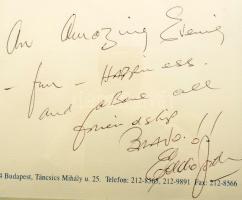 An Amazing Evening
- fun - HAPPINESS.
and above all
friendship
BRAVO!!
4 Budapest, Táncsics Mihály u. 25. Telefon: 212-8565, 212-9891 Fax: 212-8566